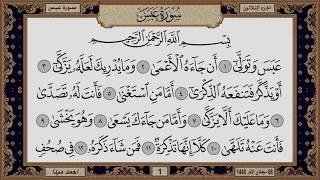 الجزء الثلاثون
سورة عبس
سُورَةُ عَبَسَ
بِسْمِ اللَّهِ الرَّحْمَٰنِ الرَّحِيمِ
عَبَسَ وَتَوَلَّىٰ ١ أَن جَاءَهُ الْأَعْمَىٰ ٢ وَمَا يُدْرِيكَ لَعَلَّهُ يَزَّكَّىٰ ٣
أَوْ يَذَّكَّرُ فَتَنفَعَهُ الذِّكْرَىٰ ٤ أَمَّا مَنِ اسْتَغْنَىٰ ٥ فَأَنتَ لَهُ تَصَدَّىٰ
٦ وَمَا عَلَيْكَ أَلَّا يَزَّكَّىٰ ٧ وَأَمَّا مَن جَاءَكَ يَسْعَىٰ ٨ وَهُوَ يَخْشَىٰ ٩
فَأَنتَ عَنْهُ تَلَهَّىٰ ١٠ كَلَّا إِنَّهَا تَذْكِرَةٌ ١١ فَمَن شَاءَ ذَكَرَهُ ١٢ فِي صُحُفٍ
1